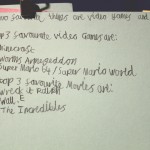 two favourite things are video games and
Top 3 favourite video games are:
Minecraft
Worms Armageddon
Super Mario 64/Super Mario World
Top 3 favourite Movies are:
Wreck it Ralph
Wall.E
The Incredibles